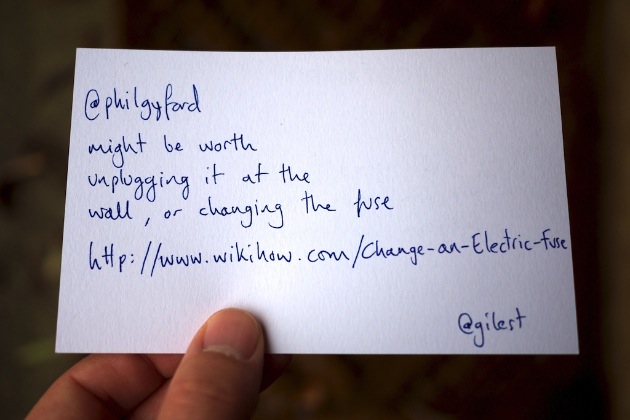 @philgyford
might be worth
unplugging it at the
wall, or changing the fuse
http://www.wikihow.com/Change-an-Electric-fuse
@gilest